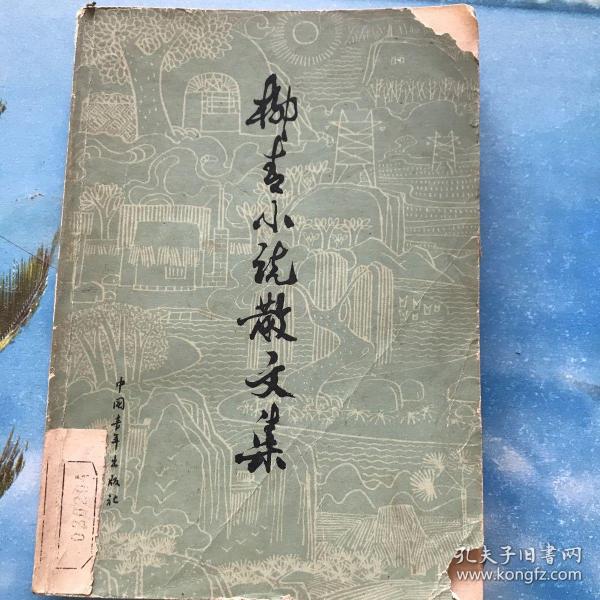 柳青小说散文集
中国青年出版社
030201
孔夫子旧书网
www.kongfz.com